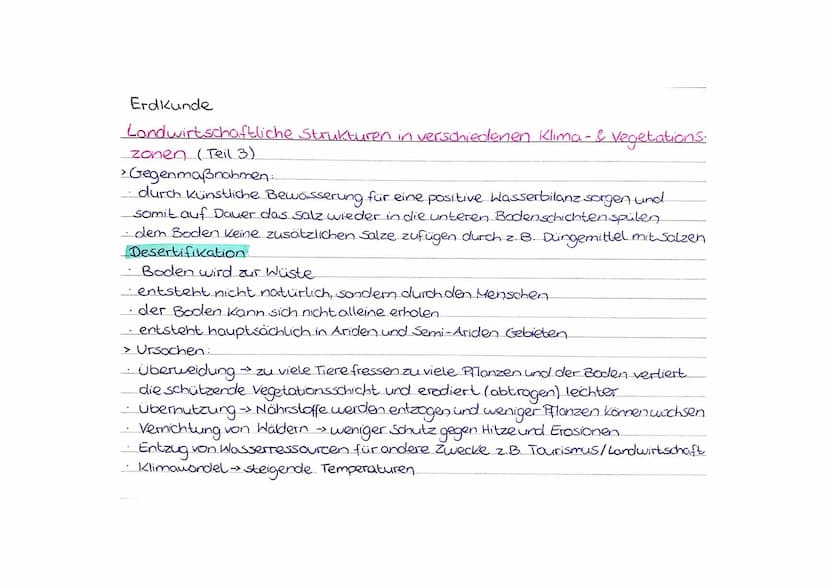 Erdkunde
Landwirtschaftliche Strukturen in verschiedenen Klima- & Vegetations-
zonen (Teil 3)
> Gegenmaßnahmen:
· durch künstliche Bewässerung für eine positive Wasserbilanz sorgen und
somit auf Dauer das Salz wieder in die unteren Bodenschichten spülen
· dem Boden keine zusätzlichen Salze zufügen durch z.B. Düngemittel mit Salzen
Desertifikation
· Boden wird zur Wüste
· entsteht nicht natürlich, sondern durch den Menschen
· der Boden kann sich nicht alleine erholen
· entsteht hauptsächlich in Ariden und Semi-Ariden Gebieten
> Ursachen:
· Überweidung → zu viele Tiere fressen zu viele Pflanzen und der Boden verliert
die schützende Vegetationsschicht und erodiert (abtragen) leichter
· Übernutzung → Nährstoffe werden entzogen und weniger Pflanzen können wachsen
· Vernichtung von Wäldern → weniger Schutz gegen Hitze und Erosionen
· Entzug von Wasserressourcen für andere Zwecke z.B. Tourismus/Landwirtschaft
· Klimawandel → steigende Temperaturen